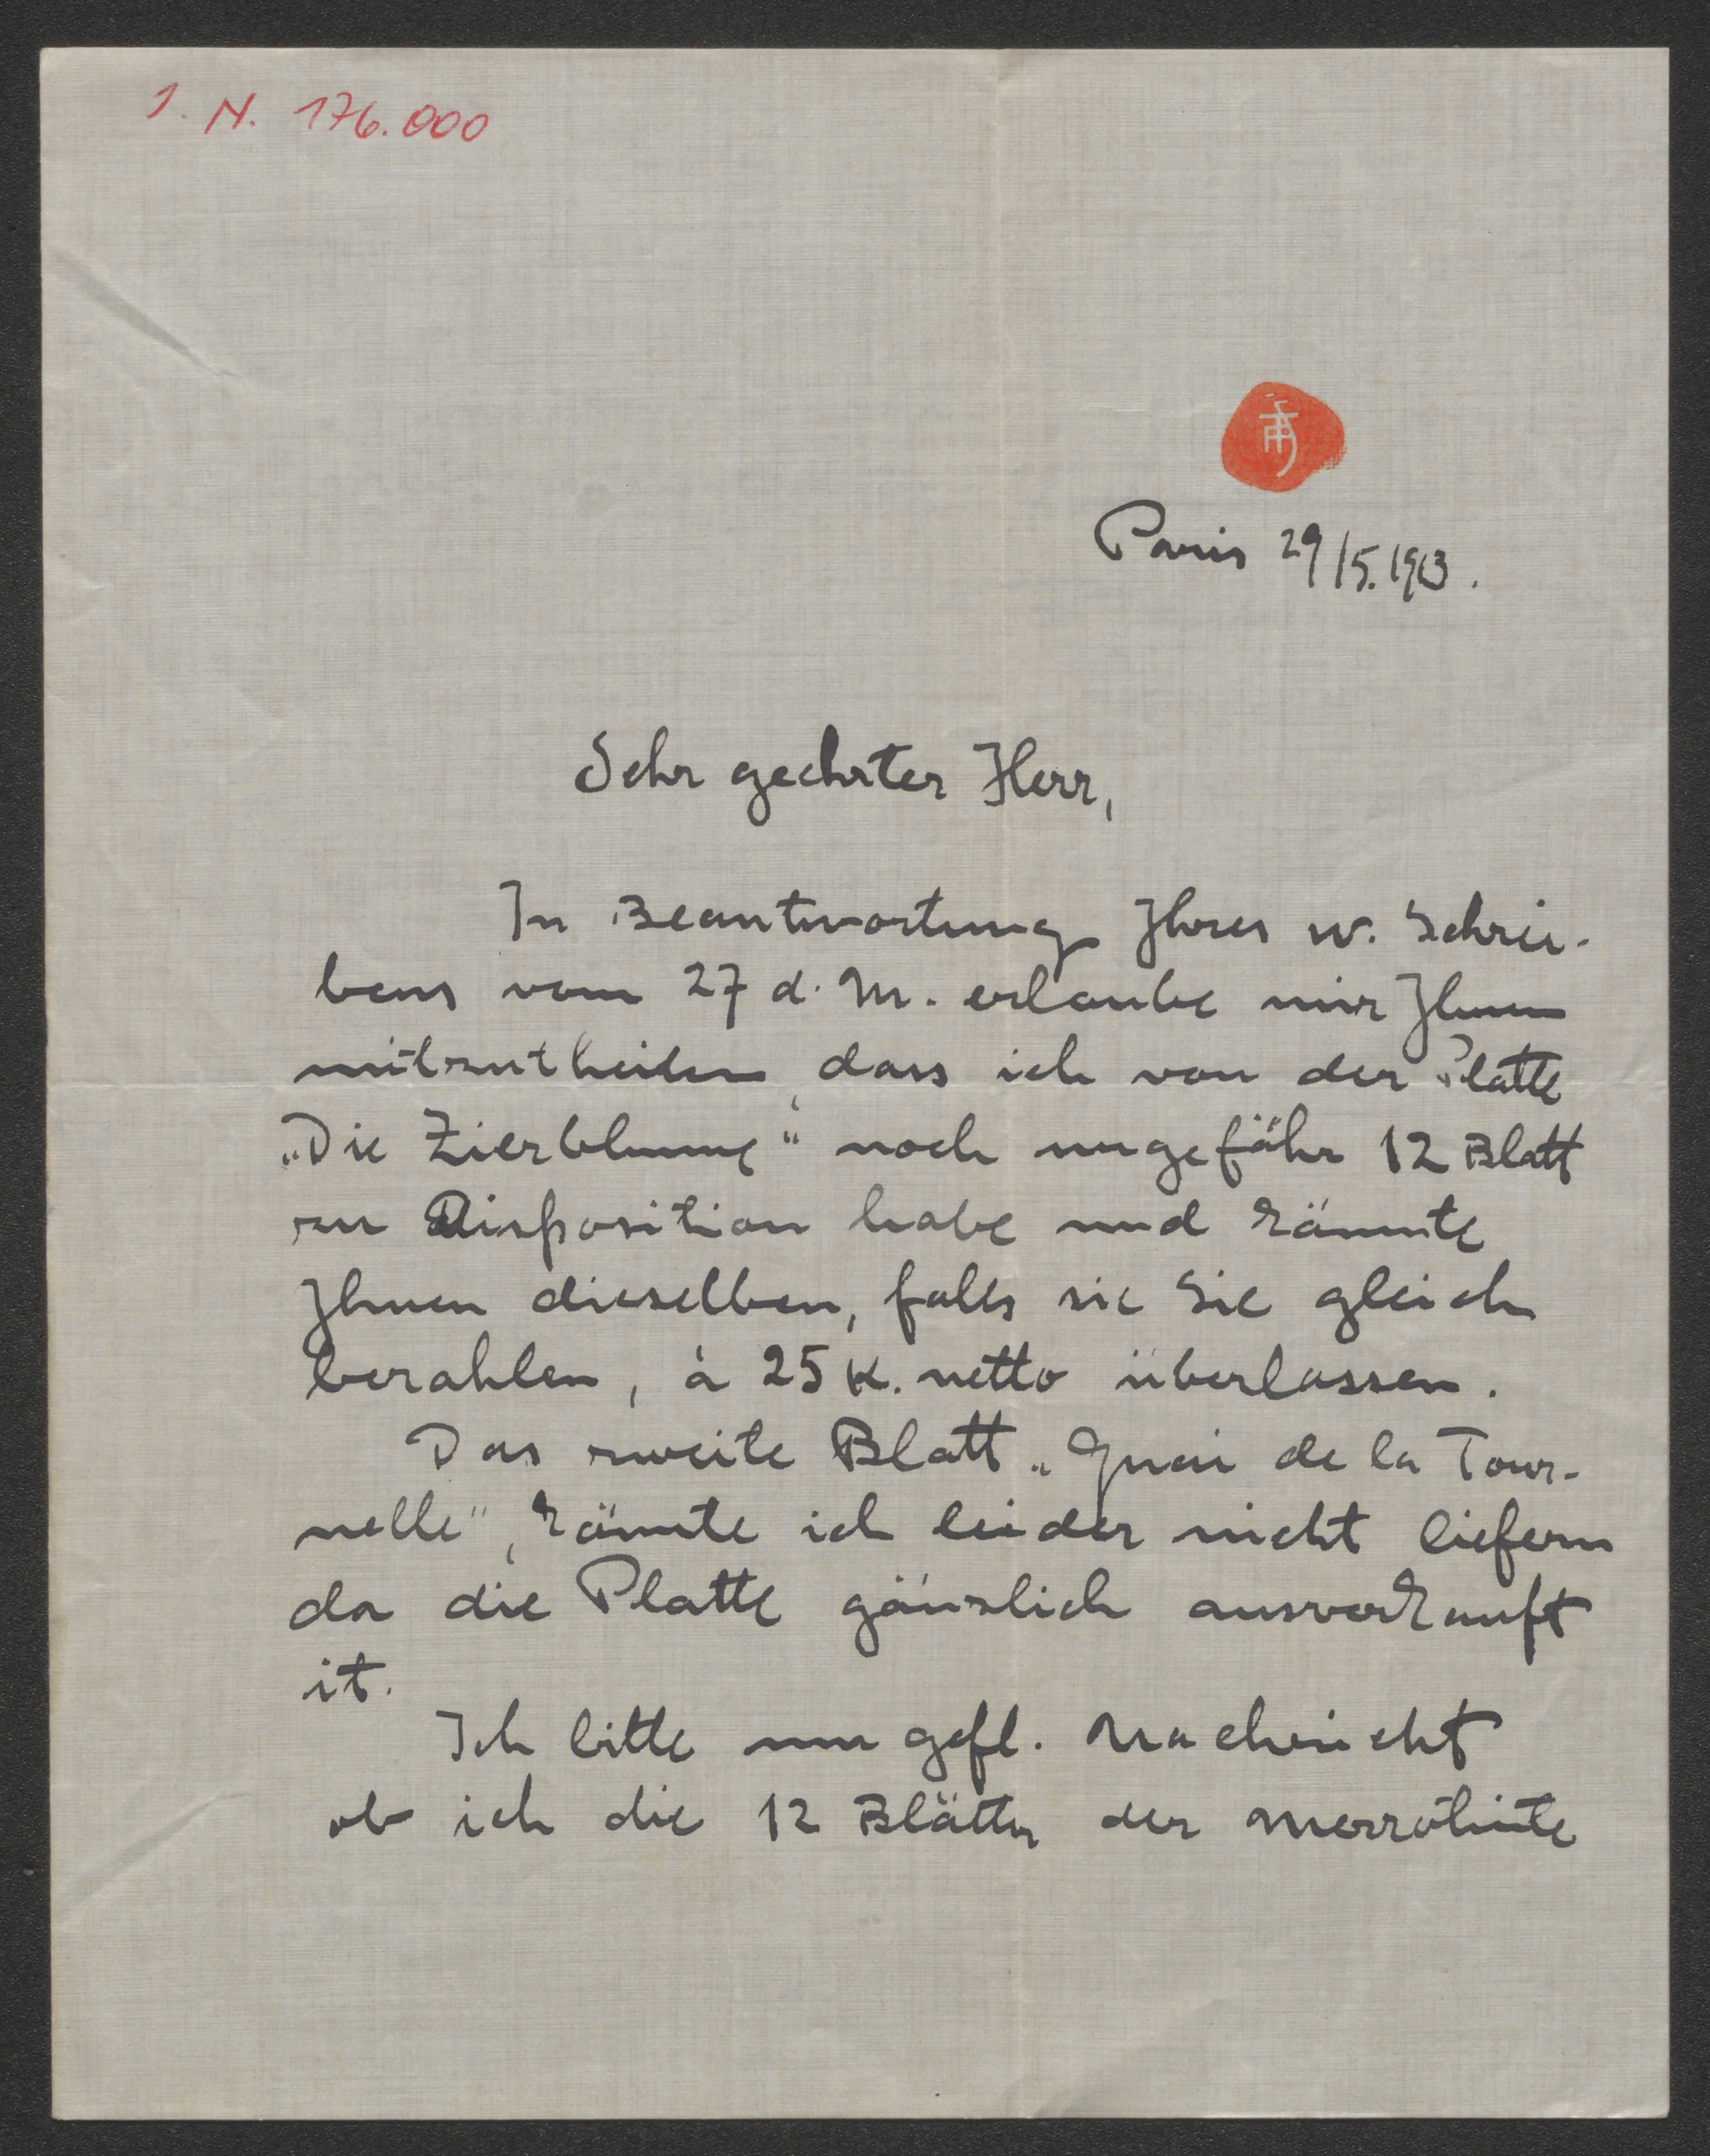 I. N. 176.000
Paris 29/5.1913.
Sehr geehrter Herr,
In Beantwortung Ihres w. Schrei-
bens vom 27 d. M. erlaube mir Ihnen
mitzutheilen, dass ich von der Platte
„Die Zierblume“ noch ungefähr 12 Blatt
zur Disposition habe und könnte
Ihnen dieselben, falls sie Sie gleich
bezahlen, à 25 K. netto überlassen.
Das zweite Blatt „Quai de la Tour-
nelle“, könnte ich leider nicht liefern
da die Platte gänzlich ausverkauft
it.
Ich bitte um gefl. Nachricht
ob ich die 12 Blätter der Mezzotinte